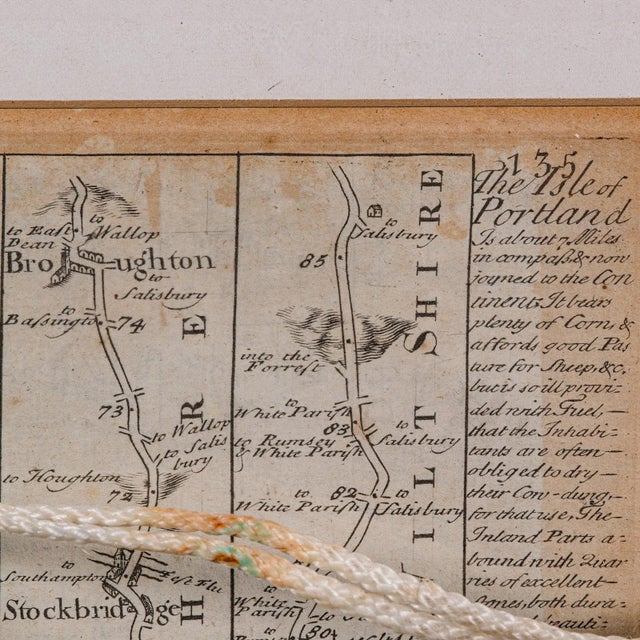 135
to East
Dean
to
Wallop
Broughton
to
Salisbury
to
Bassington
74
73
to Wallop
to Salis
bury
to Houghton
72
to
Southampton
Stockbridge
H R E
to
Salisbury
85
into the
Forrest
to
White Parish
83
to Rumsey
& White Parish
to
Salisbury
82
to
White Parish
to
Salisbury
to
White
Parish
80
to
WILT SHIRE
The Isle of
Portland
Is about 7 Miles
in compass & now
joyned to the Con
tinent; It bears
plenty of Corn, &
affords good Pas
ture for Sheep, &c.
but is so ill provi-
ded with Fuel, —
that the Inhabi-
tants are often —
obliged to dry —
their Cow-dung,
for that use, The
Inland Parts a-
bound with Quar
ries of excellent
Stones, both dura-
beauti-